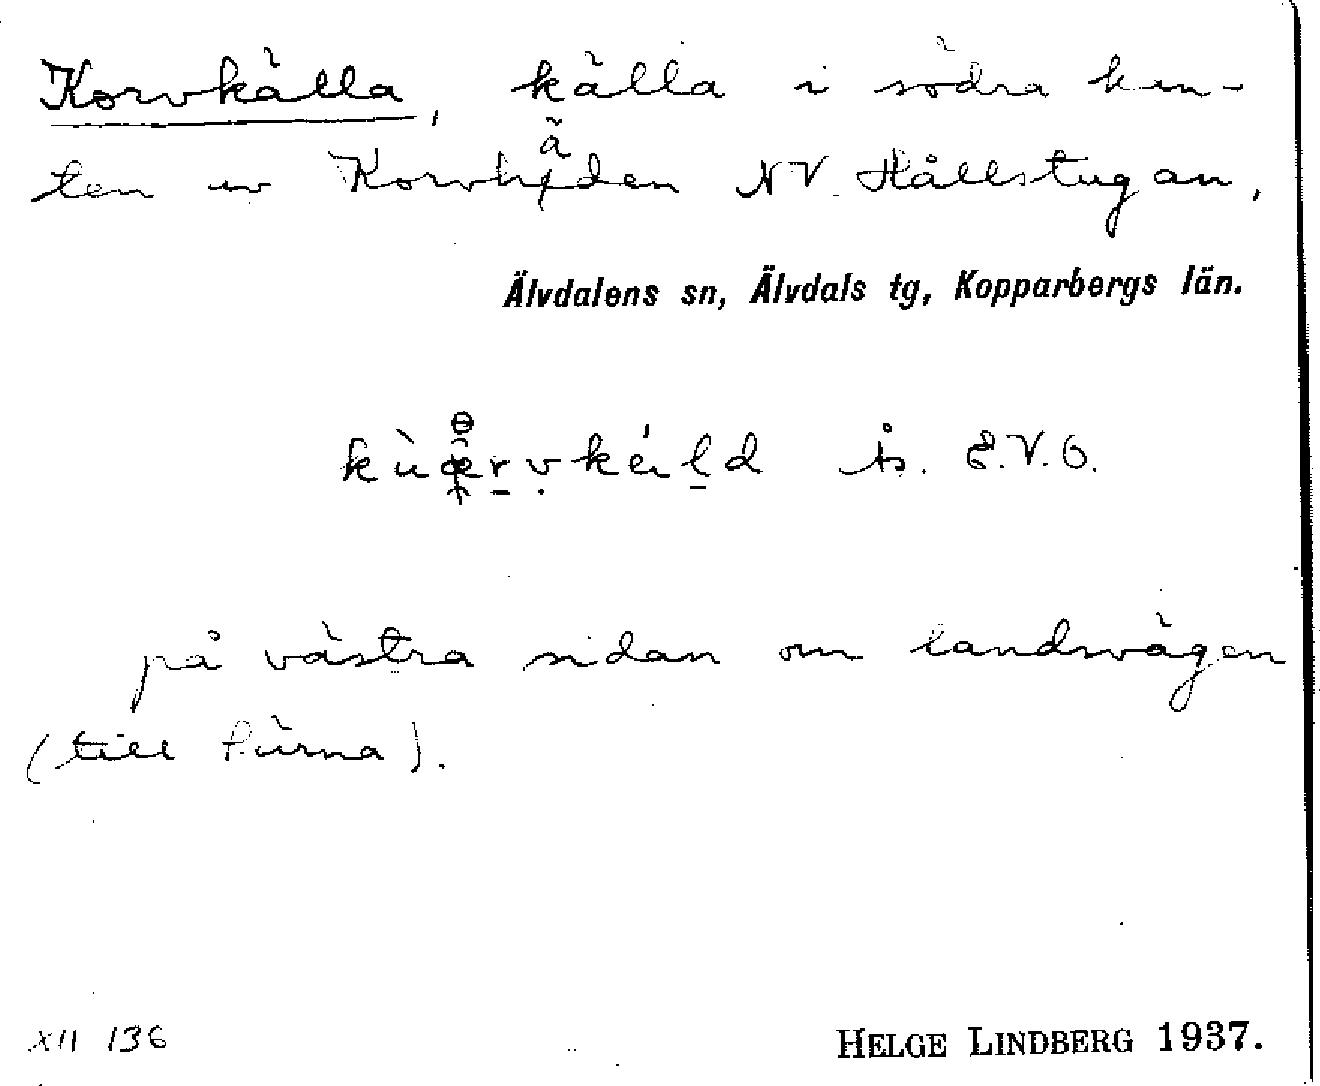 Korvkälla, källa i södra kan-
ten av Korvhäden NV Hållstugan,
Älvdalens sn, Älvdals tg, Kopparbergs län.
Ås. E.V.O.
på västra sidan om landsvägen
(till Särna).
XII 136
HELGE LINDBERG 1937.